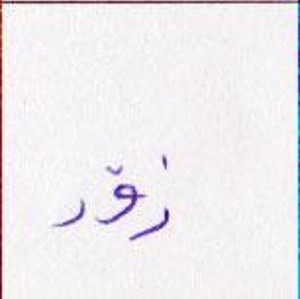 زۆر